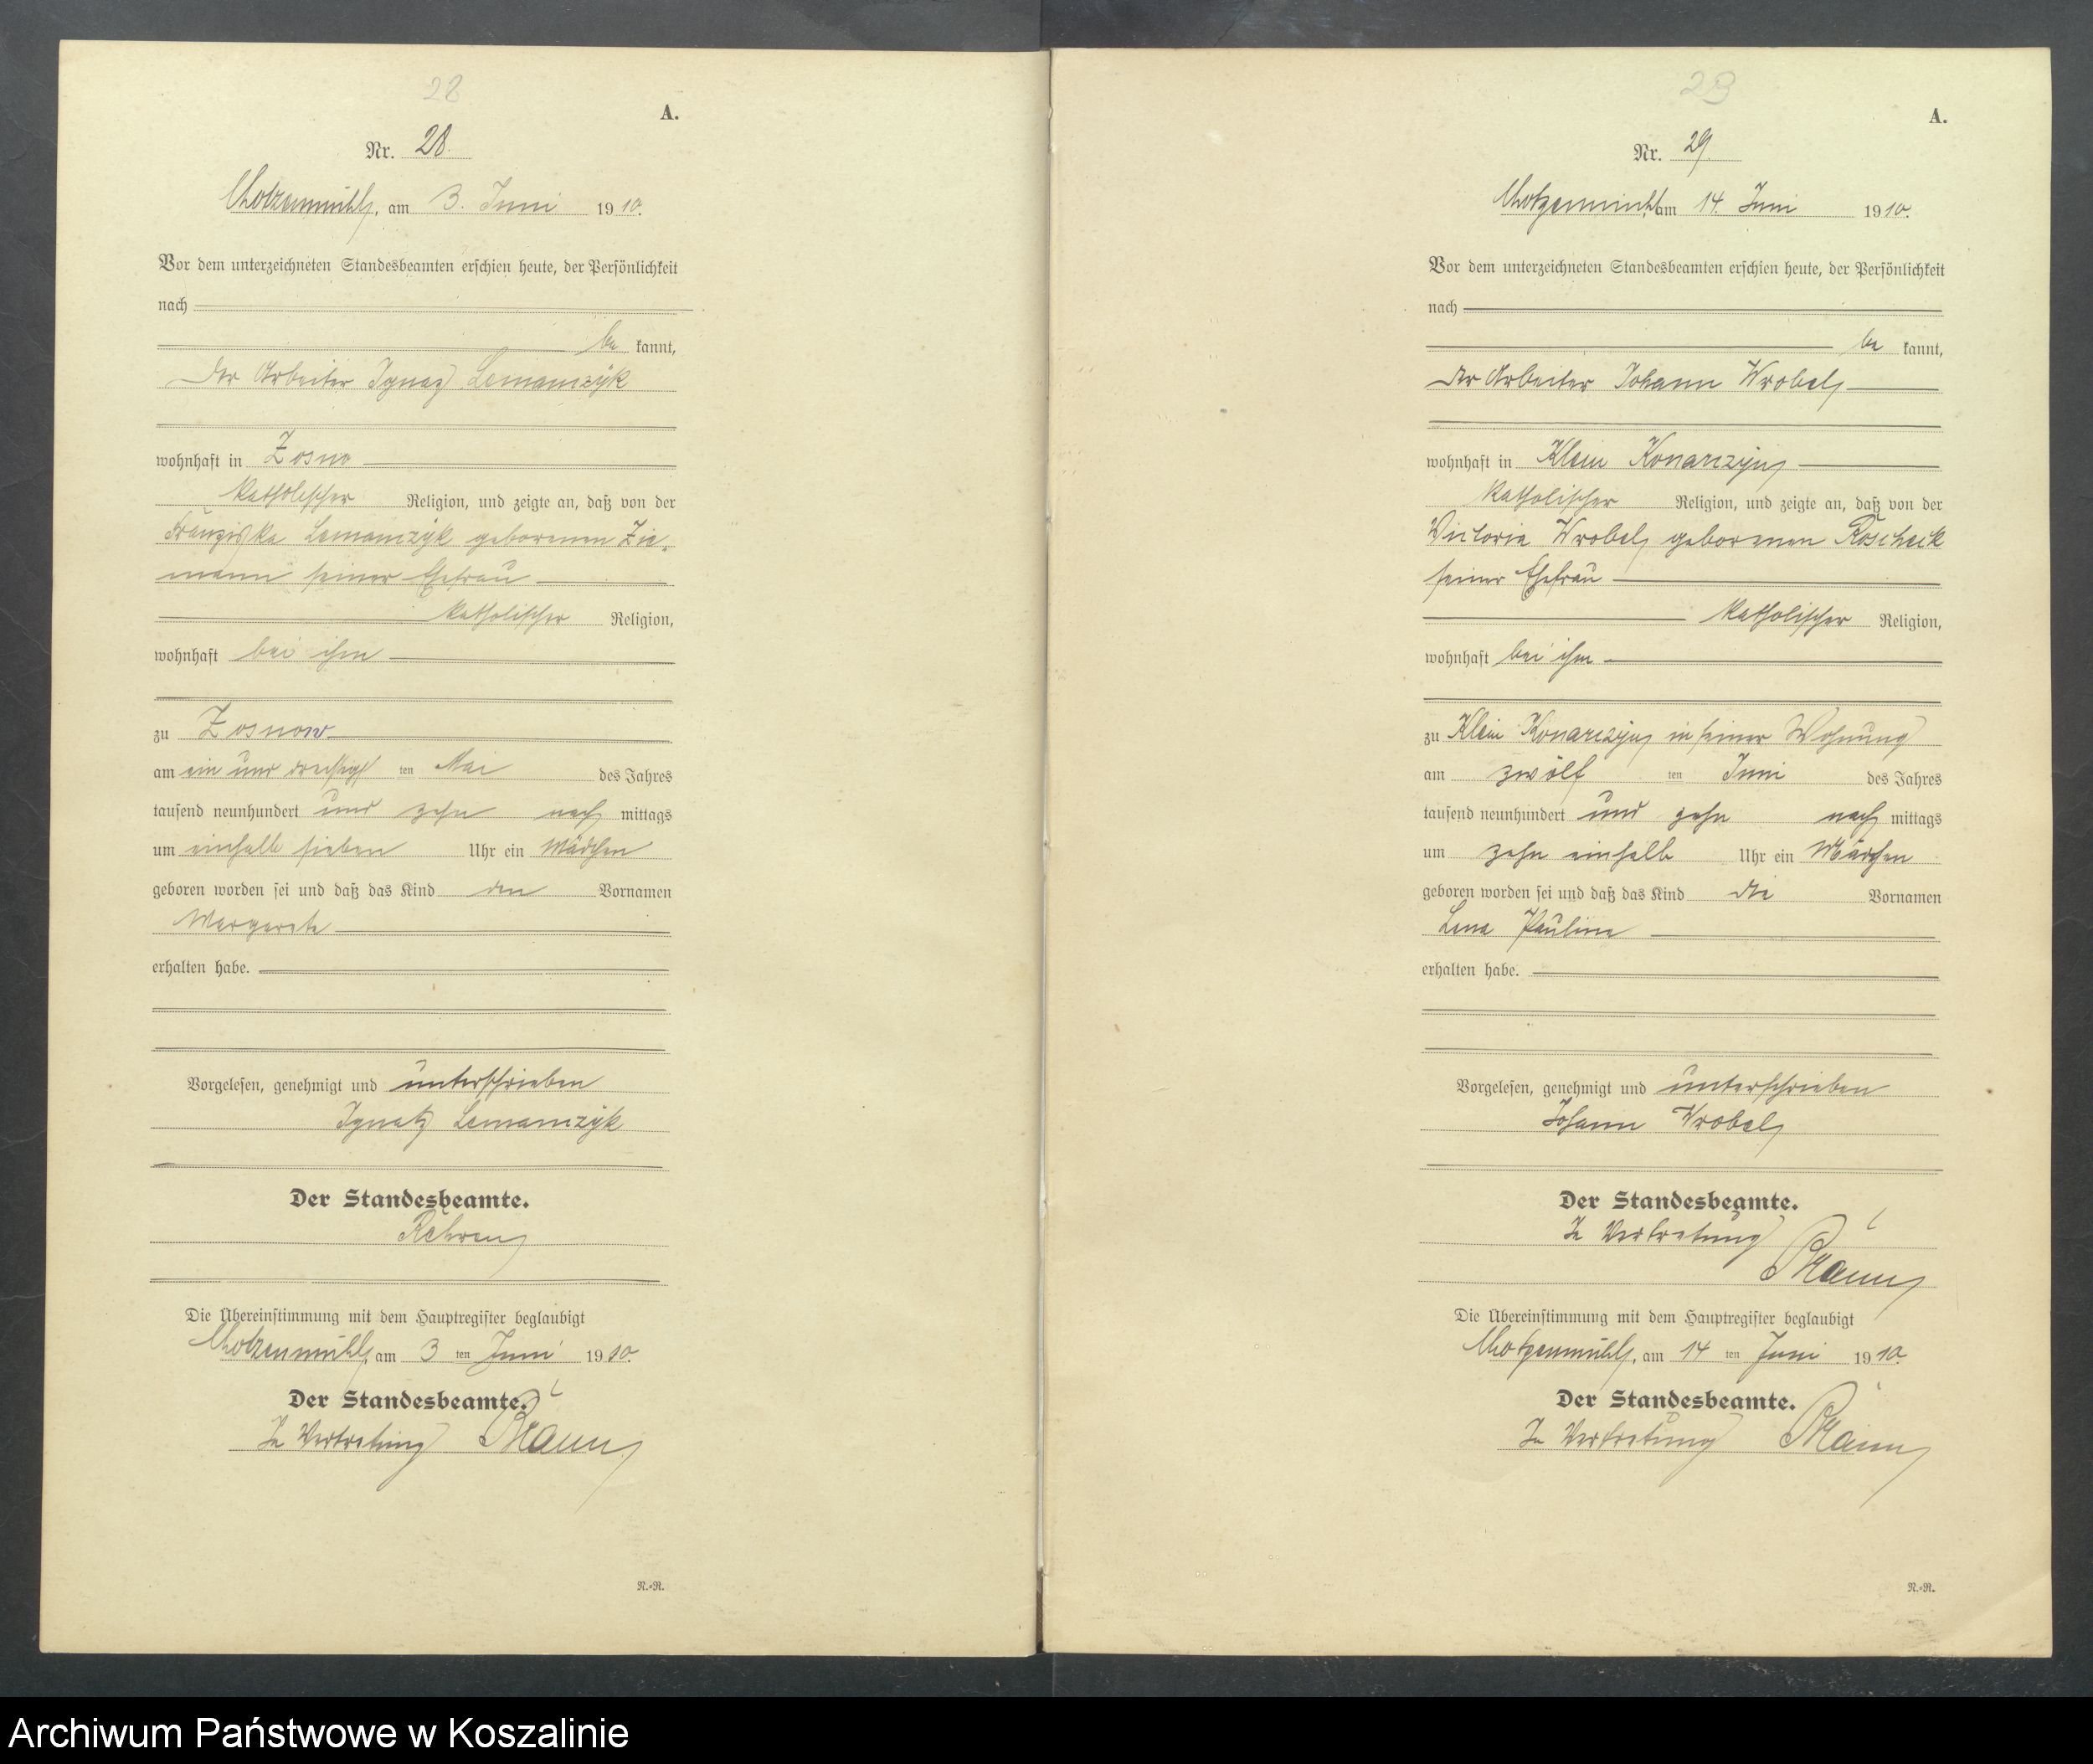 28
A.
Nr. 28.
Chotzenmühl, am 3. Juni 1910.
Vor dem unterzeichneten Standesbeamten erschien heute, der Persönlichkeit
nach
be kannt,
der Arbeiter Ignaz Lemanczÿk
wohnhaft in Zosno
katholischer Religion, und zeigte an, daß von der
Franziska Lemanczÿk geborenen Zie-
mann seiner Ehefrau
katholischer Religion,
wohnhaft bei ihm
zu Zosnow
am ein und dreißigst ten Mai des Jahres
tausend neunhundert und zehn nach mittags
um einhalb sieben Uhr ein Mädchen
geboren worden sei und daß das Kind den Vornamen
Margarete
erhalten habe.
Vorgelesen, genehmigt und unterschrieben
Ignatz Lemanczÿk
Der Standesbeamte.
Die Übereinstimmung mit dem Hauptregister beglaubigt
Chotzenmühl, am 3 ten Juni 1910.
Der Standesbeamte.
In Vertretung
N.-R.
A.
Nr. 29.
Chotzenmühl am 14. Juni 1910.
Vor dem unterzeichneten Standesbeamten erschien heute, der Persönlichkeit
nach
be kannt,
der Arbeiter Johann Wrobel
wohnhaft in Klein Konarczyn
katholischer Religion, und zeigte an, daß von der
Victoria Wrobel geborenen Koscheck
seiner Ehefrau
katholischer Religion,
wohnhaft bei ihm
zu Klein Konarczyn in seiner Wohnung
am zwölf ten Juni des Jahres
tausend neunhundert und zehn nach mittags
um zehn einhalb Uhr ein Mädchen
geboren worden sei und daß das Kind die Vornamen
Lena Pauline
erhalten habe.
Vorgelesen, genehmigt und unterschrieben
Johann Wrobel
Der Standesbeamte.
In Vertretung
Die Übereinstimmung mit dem Hauptregister beglaubigt
Chotzenmühl, am 14 ten Juni 1910.
Der Standesbeamte.
In Vertretung
N.-R.
Archiwum Państwowe w Koszalinie